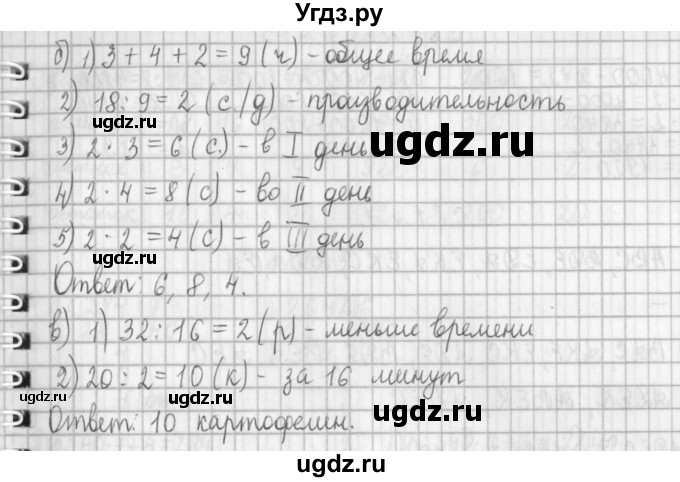 Угдз.ру
б) 1) 3 + 4 + 2 = 9 (ч) - общее время
2) 18 : 9 = 2 (с/д) - производительность
3) 2 · 3 = 6 (с.) - в I день
4) 2 · 4 = 8 (с) - во II день
5) 2 · 2 = 4 (с) - в III день
Ответ: 6, 8, 4.
в) 1) 32 : 16 = 2 (р) - меньше времени
2) 20 : 2 = 10 (к) - за 16 минут
Ответ: 10 картофелин.
ugdz.ru
ugdz.ru
ugdz.ru
ugdz.ru
ugdz.ru
ugdz.ru
ugdz.ru
ugdz.ru
ugdz.ru